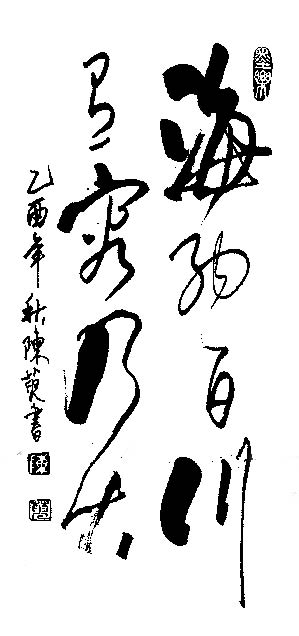 海納百川
有容乃大
乙酉年秋陳書